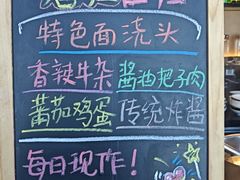 特色面浇头
香辣牛杂 酱油把子肉
蕃茄鸡蛋 传统炸酱
每日现作！